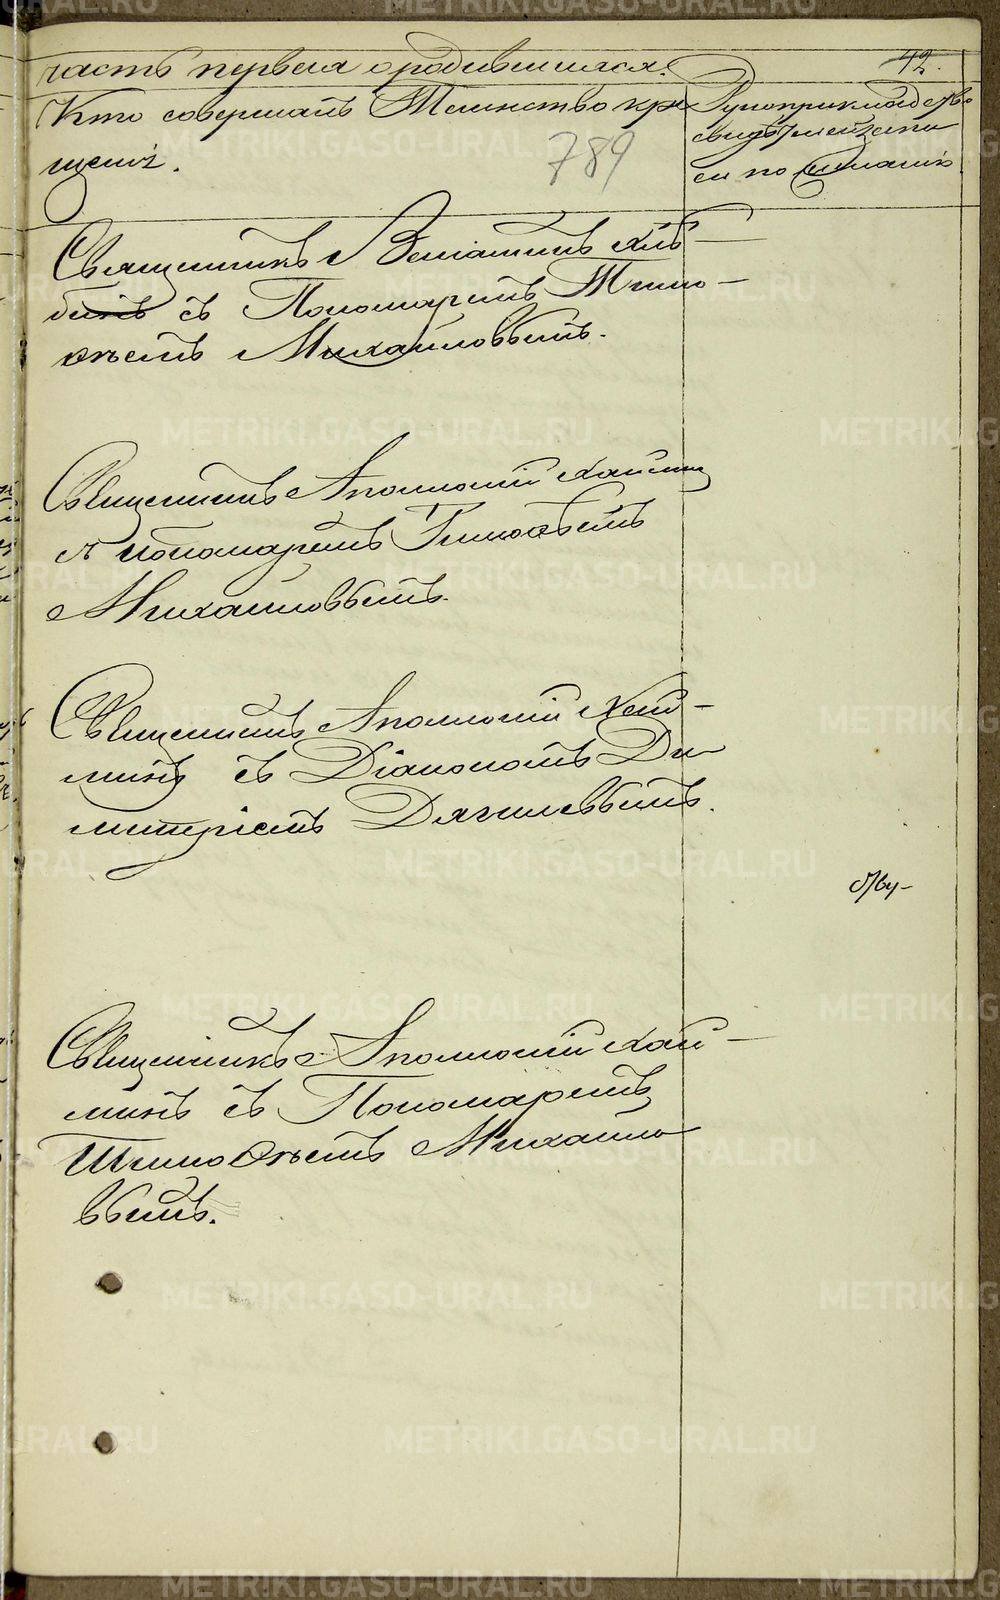 часть первая о родившихся.
42.
Кто совершалъ Таинство кре
щенія.
789
Рукоприкладство
свидѣтелей записи
си по желанію
Священникъ Веніаминъ
бинъ съ Пономаремъ Тимо-
ѳеемъ Михайловымъ.
Священникъ Аполлоній Хаймин
съ пономаремъ Тимоѳеемъ
Михайловымъ.
Священникъ Аполлоній Хай-
минъ съ Діакономъ Ди
митріемъ Дягилевымъ.
Священникъ Аполлоній Хай-
минъ съ Пономаремъ
Тимоѳеемъ Михайло
вымъ.
METRIKI.GASO-URAL.RU